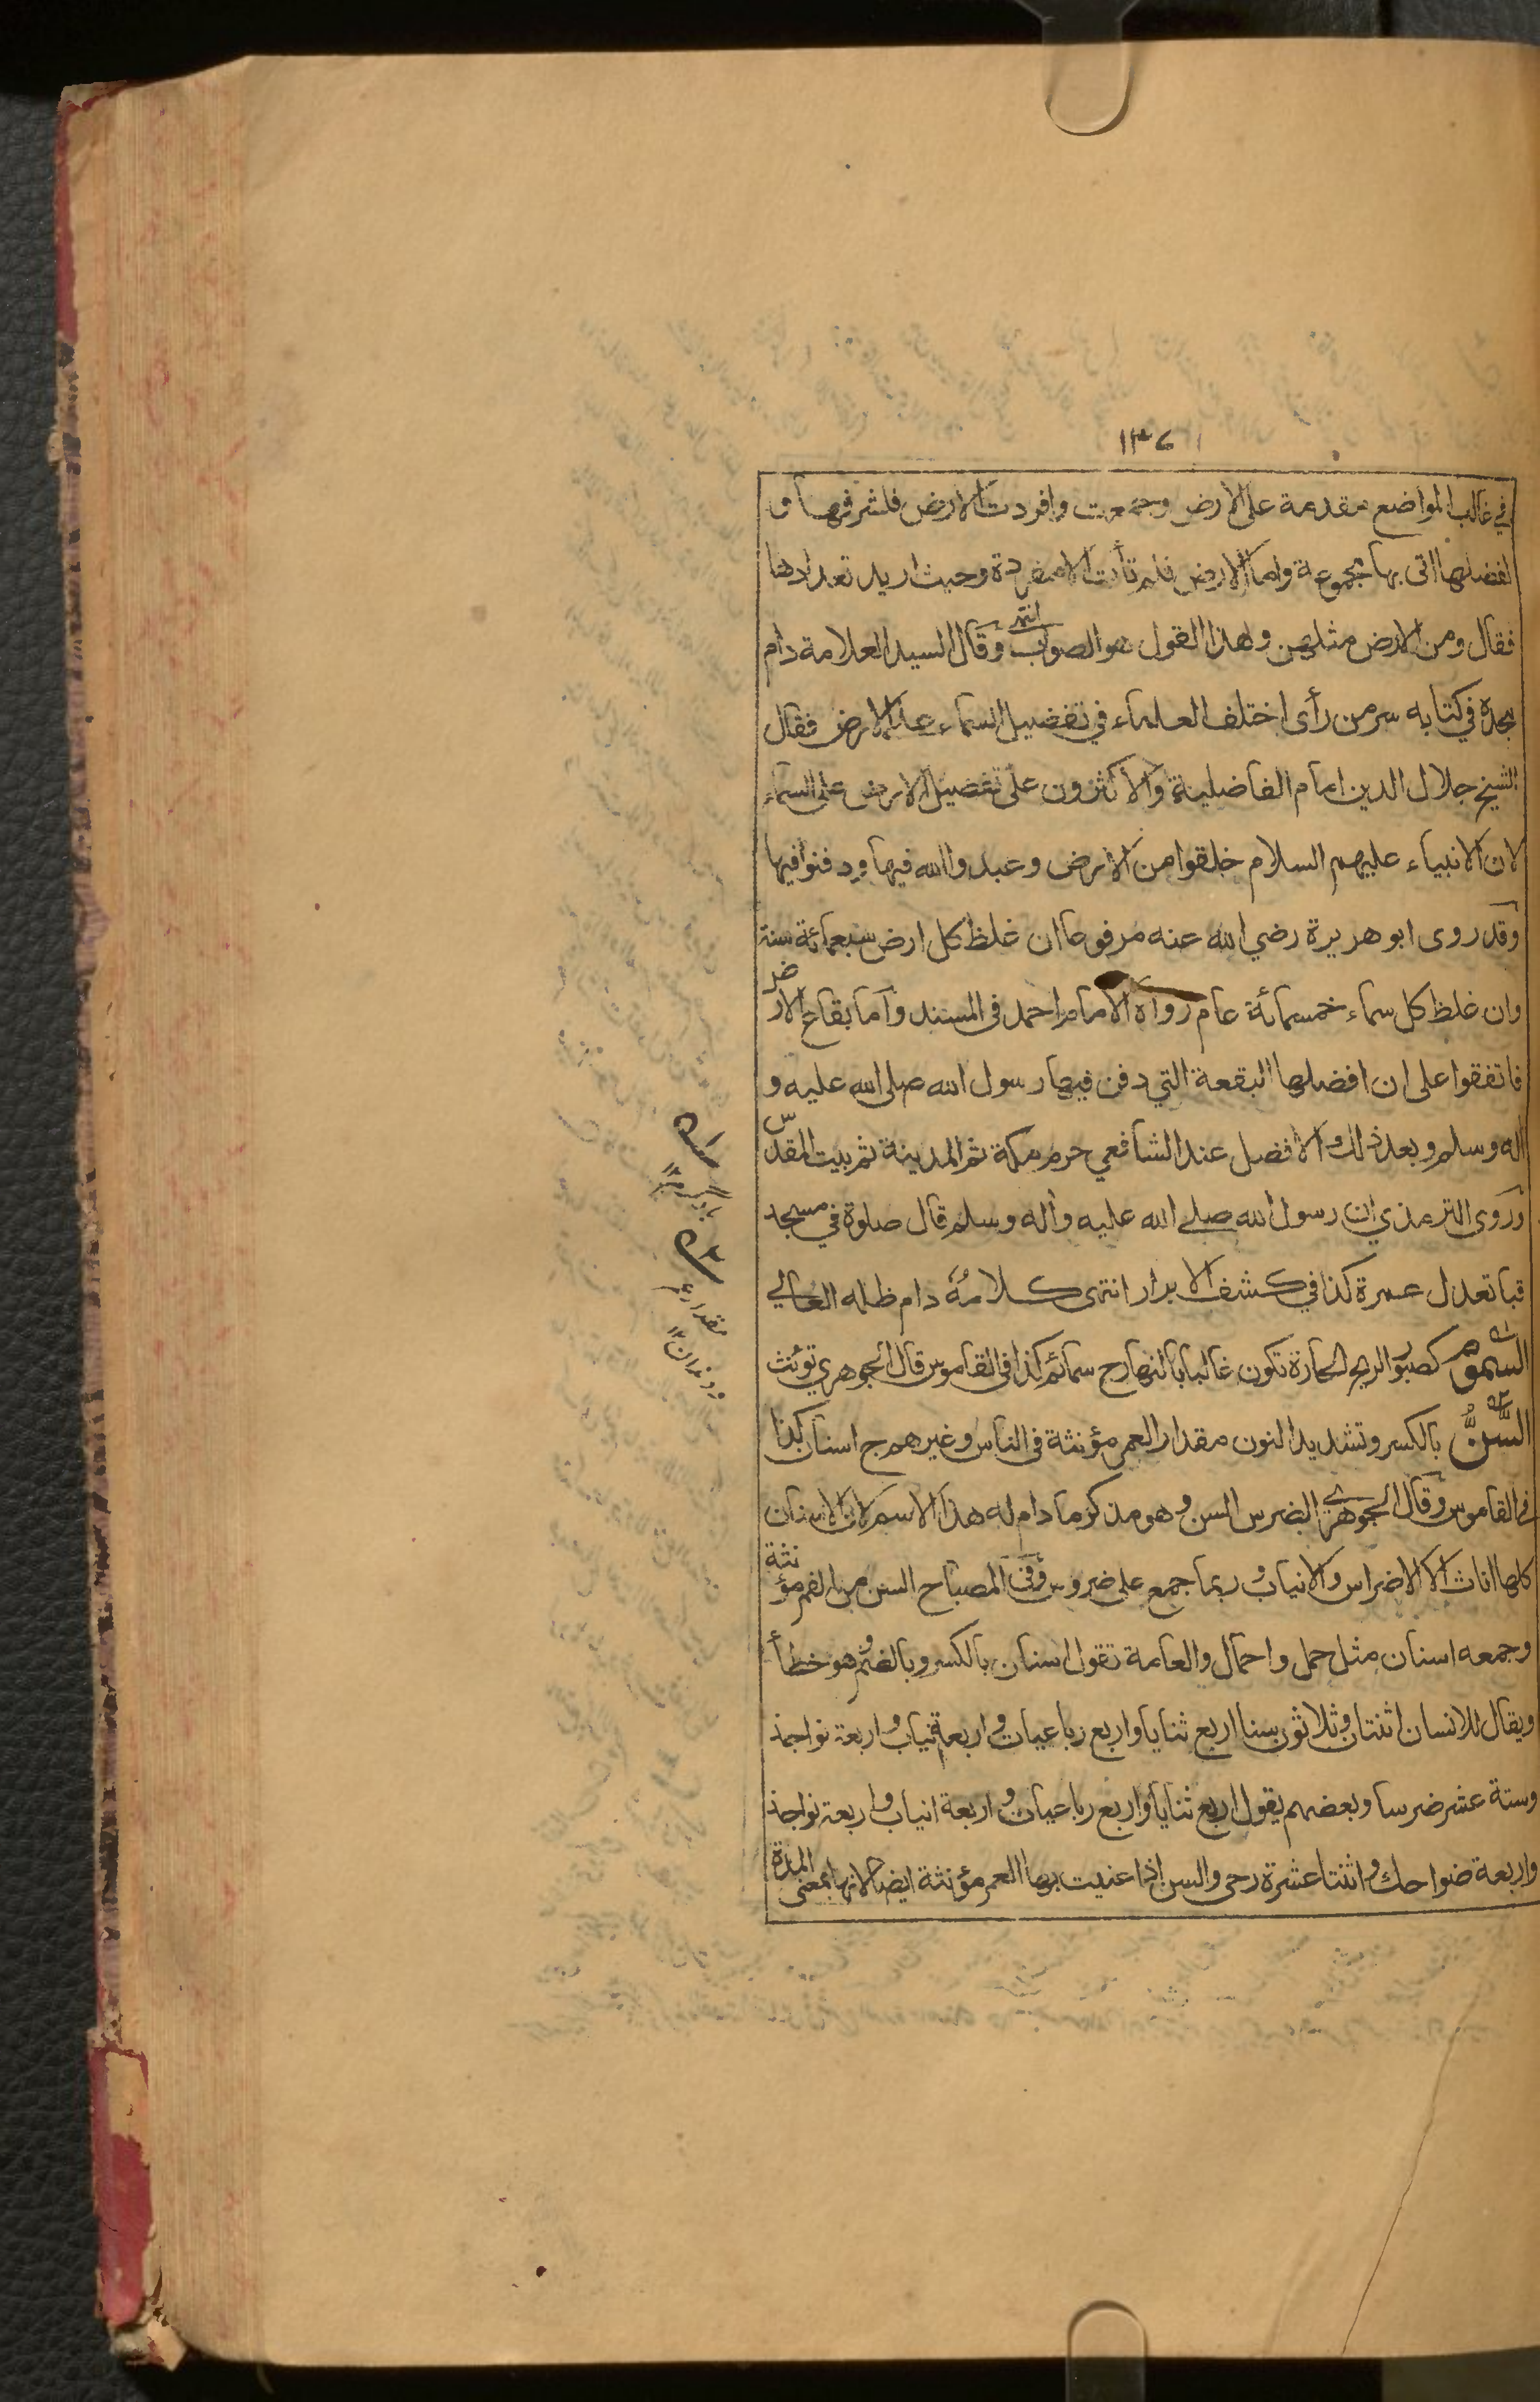 ١٣٦
في غالب المواضع مقدمة على الارض وجمعت وافردت الارض فلشرفها و
لفضلها اتى بها مجموعة واما الارض فلم تأت الا مفردة وحيث اريد تعدادها
فقال ومن الارض مثلهن وهذا القول هو الصواب انتهى وقال السيد العلامة دام
مجده في كتابه سر من رأى اختلف العلماء في تفضيل السماء على الارض فقال
الشيخ جلال الدين امام الفاضلية والاكثرون على تفضيل الارض على السماء
لان الانبياء عليهم السلام خلقوا من الارض وعبدوا الله فيها ودفنوا فيها
وقد روى ابو هريرة رضي الله عنه مرفوعا ان غلظ كل ارض سبعمائة سنة
وان غلظ كل سماء خمسمائة عام رواه الامام احمد في المسند واما بقاع الارض
فاتفقوا على ان افضلها البقعة التي دفن فيها رسول الله صلى الله عليه و
آله وسلم وبعد ذلك الافضل عند الشافعي حرم مكة ثم المدينة ثم بيت المقدس
وروى الترمذي ان رسول الله صلے الله عليه وآله وسلم قال صلوة في مسجد
قبا تعدل عمرة كذا في كشف الابرار انتهى كلامُهُ دام ظله العالي
السموم كصبور الريح الحارة تكون غالبا بالنهار ج سمائم كذا في القاموس قال الجوهري تؤنث
السِّنُّ بالكسر وتشديد النون مقدار العمر مؤنثة في الناس وغيرهم ج اسنان كذا
في القاموس وقال الجوهرے الضرس السن وهو مذكر ما دام له هذا الاسم لان الاسنان
كلها اناث الا الاضراس والانياب وربما جمع على ضروس وفي المصباح السن من الفم مؤنثة
وجمعه اسنان مثل حمل واحمال والعامة تقول اسنان بالكسر وبالضم وهو خطأ
ويقال للانسان اثنتان وثلاثون سنا اربع ثنايا واربع رباعيات واربعة انياب واربعة نواجذ
وستة عشر ضرسا وبعضهم يقول اربع ثنايا واربع رباعيات واربعة انياب واربعة نواجذ
واربعة ضواحك واثنتا عشرة رحى والسن اذا عنيت بها العمر مؤنثة ايضا لانها بمعنى المدة
مقدار عمر
ودندان